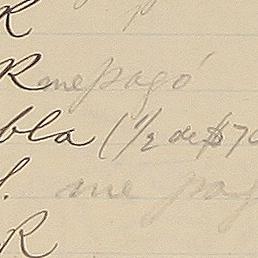 R
R me pagó
bla (1/2 de $70
l. me pag
R